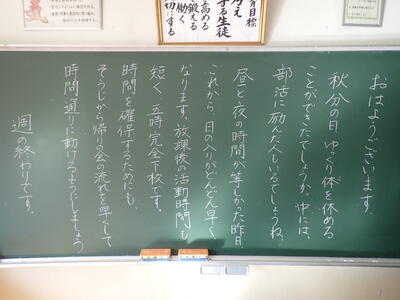 おはようございます。
秋分の日ゆっくり体を休める
ことができたでしょうか。中には、
部活に励んだ人もいるでしょうね。
昼と夜の時間が等しかった昨日。
これから、日の入りがどんどん早く
なります。放課後の活動時間も
短く、五時完全下校です。
時間を確保するためにも、
そうじから帰りの会の流れを早くして
時間通りに動けるようにしましょう
週の終わりです。